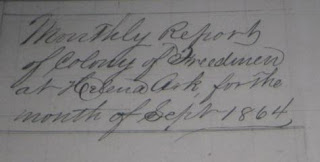 Monthly Report
of Colony of Freedmen
at Helena Ark, for the
month of Sept 1864